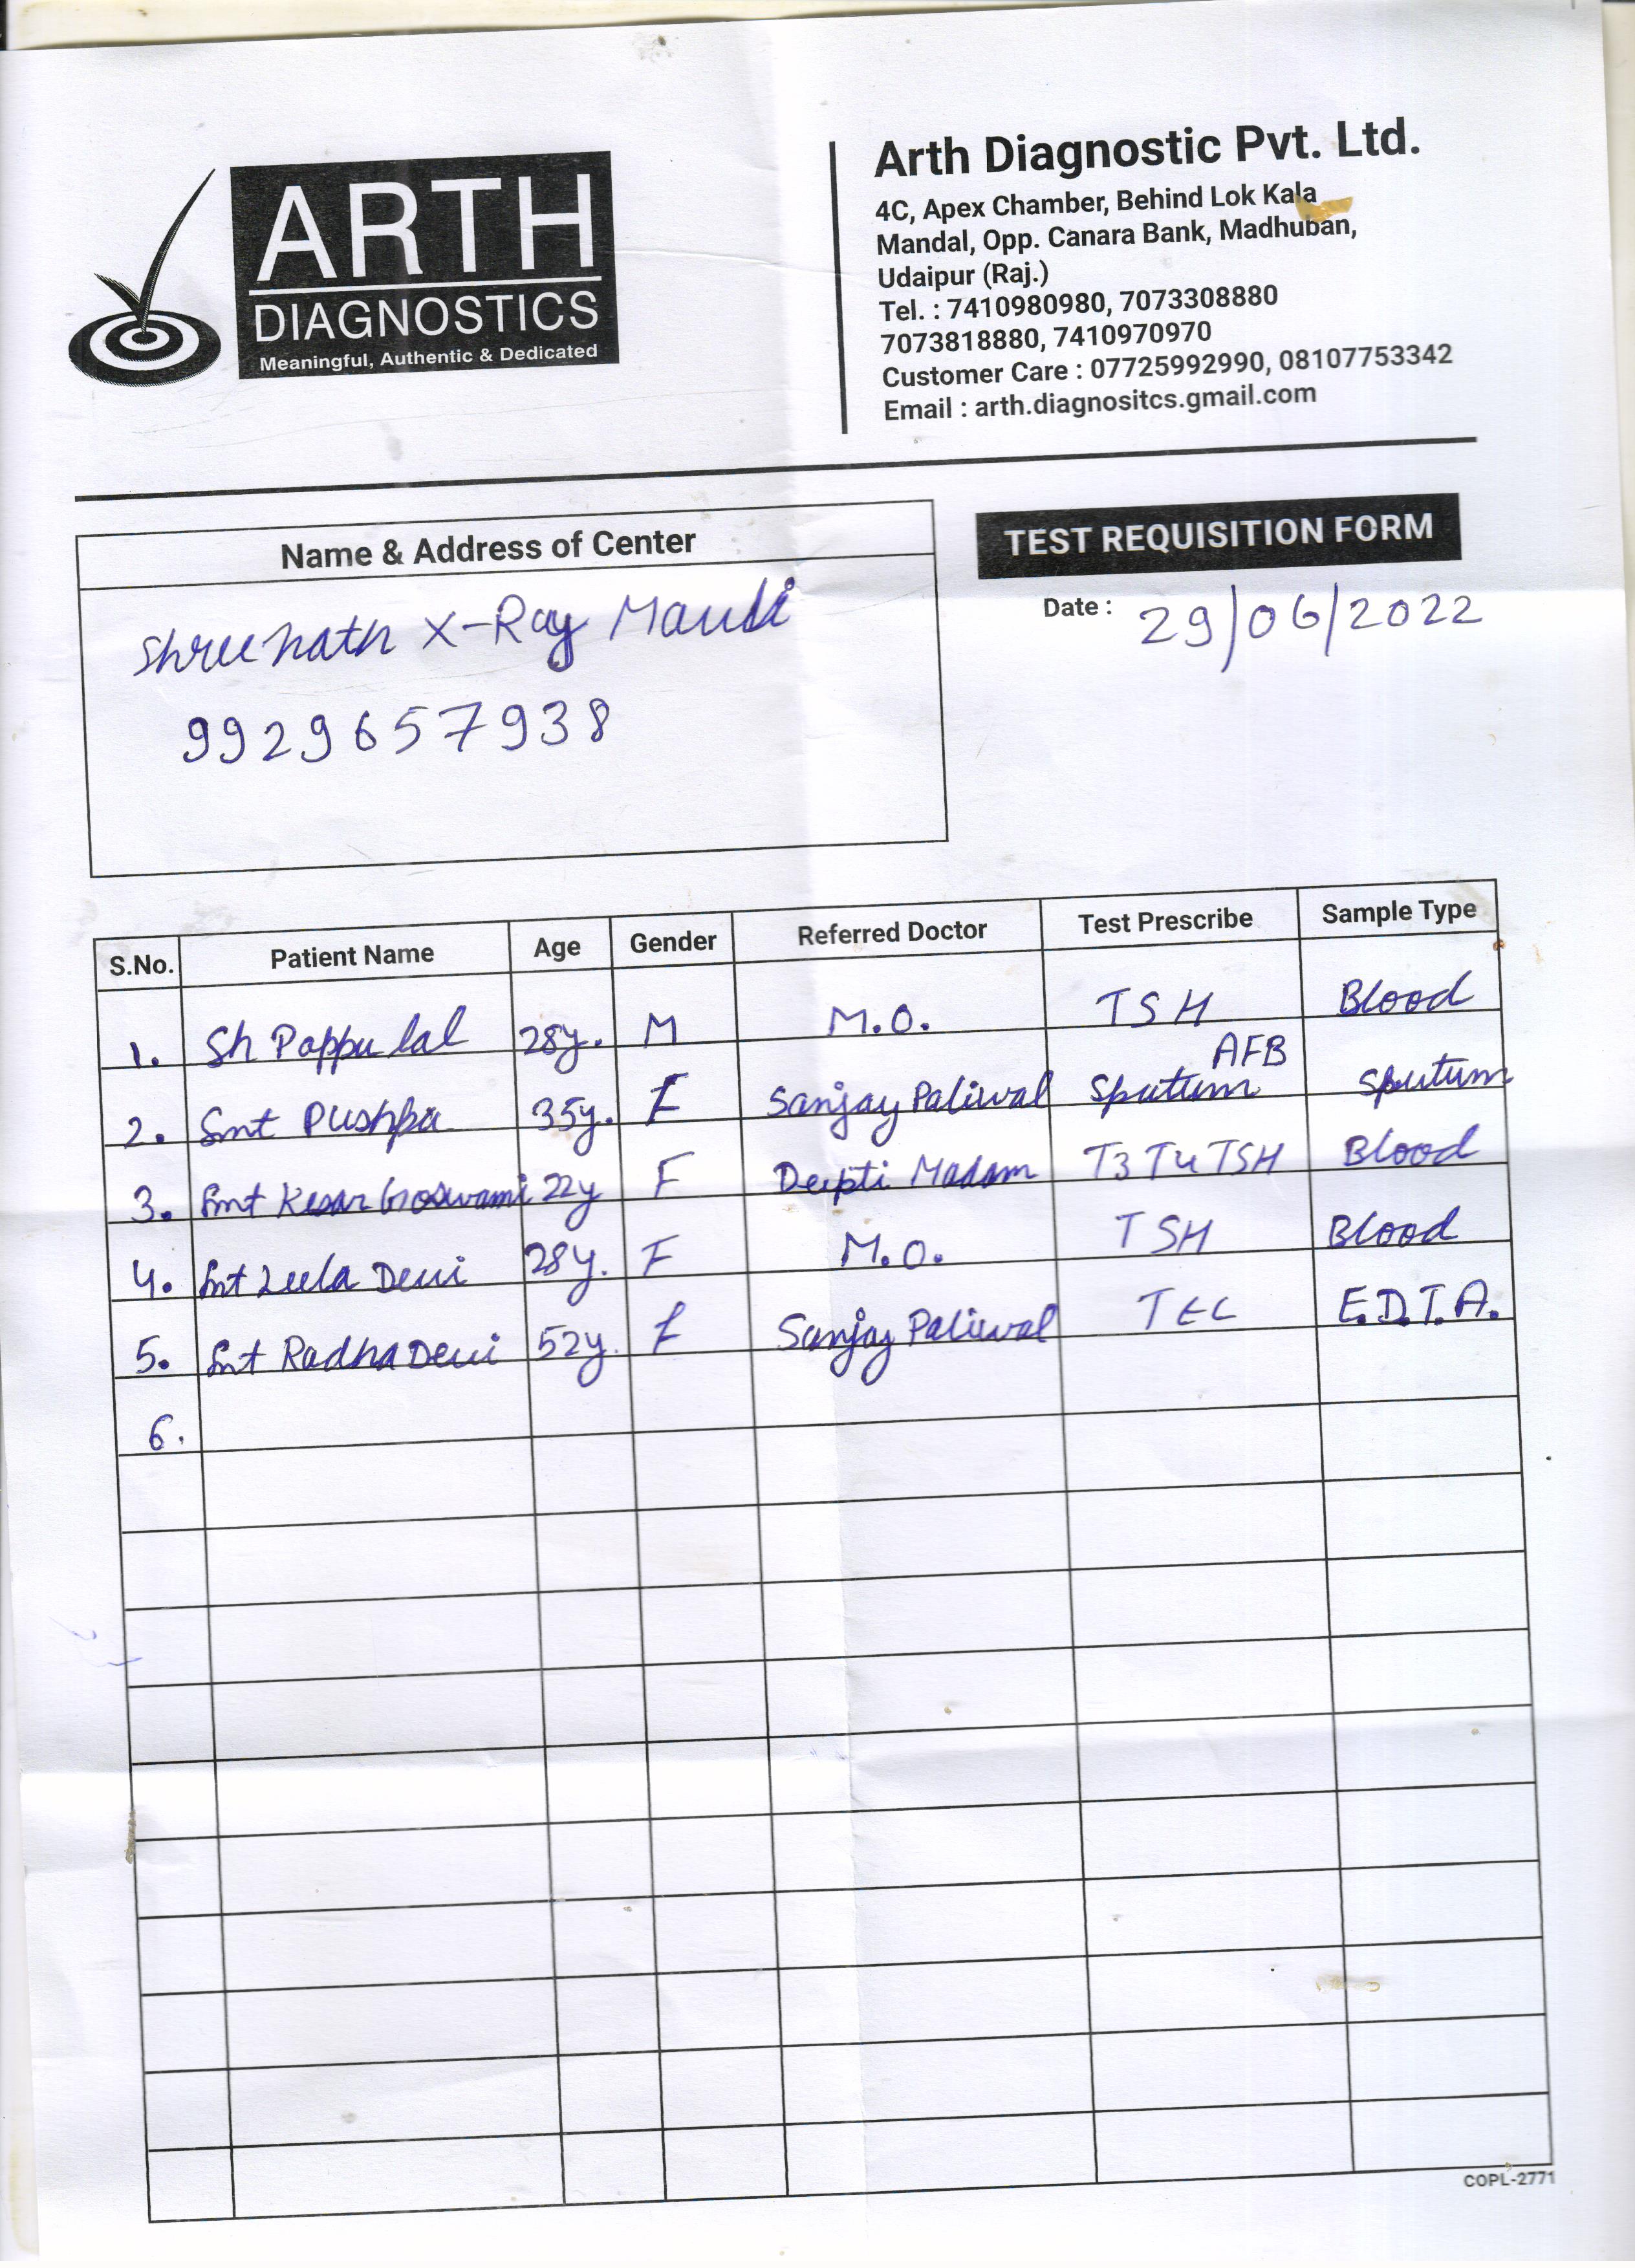 ARTH
DIAGNOSTICS
Meaningful, Authentic & Dedicated
Arth Diagnostic Pvt. Ltd.
4C, Apex Chamber, Behind Lok Kala
Mandal, Opp. Canara Bank, Madhuban,
Udaipur (Raj.)
Tel. : 7410980980, 7073308880
7073818880, 7410970970
Customer Care : 07725992990, 08107753342
Email : arth.diagnositcs.gmail.com
Name & Address of Center
Shreenath X-Ray
9929657938
TEST REQUISITION FORM
Date : 29/06/2022
S.No. Patient Name Age Gender Referred Doctor Test Prescribe Sample Type
1. Sh Pappu lal 28y. M M.O. TSH Blood
2. Smt Pushpa 35y. F Sanjay Paliwal Sputum AFB Sputum
3. Smt Kesar Goswami 22y F Deepti Madam T3 T4 TSH Blood
4. Smt Leela Devi 28y. F M.O. TSH Blood
5. Smt Radha Devi 52y. F Sanjay Paliwal TEC E.D.T.A.
6.
COPL-2771